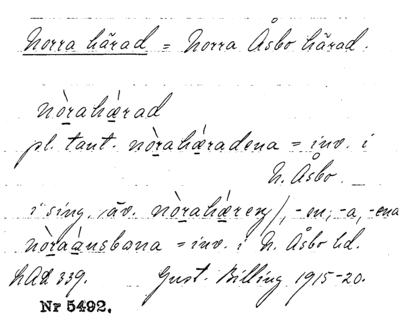 Norra härad = Norra Åsbo härad.
nòrahæ̀rad
pl. tant. nòrahæ̀radena = inv. i
N. Åsbo.
i sing. äv. nòrahæ̀reŋ/, -en, -a, -ena
nòraánsbana = inv. i N. Åsbo hd.
LAL 339. Gust. Billing 1915-20.
Nr 5492.